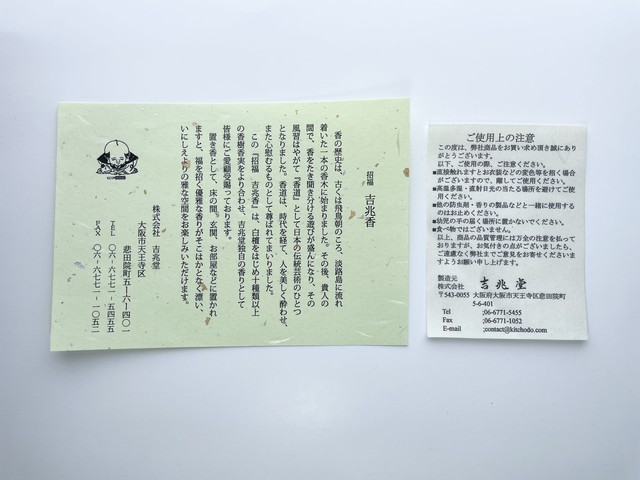 招福 吉兆香
香の歴史は、古くは飛鳥朝のころ、淡路島に流れ
着いた一本の香木に始まりました。その後、貴人の
間で、香をたき聞き分ける遊びが盛んになり、その
風習はやがて『香道』として日本の伝統芸術のひとつ
となりました。香道は、時代を経て、人を美しく酔わせ、
また心慰むるものとして尊ばれてまいりました。
この『招福 吉兆香』は、白檀をはじめ十種類以上
の香樹香実をより合わせ、吉兆堂独自の香りとして
皆様にご愛顧受賜っております。
置き香として、床の間。玄関、お部屋などに置かれ
ますと、福を招く優雅な香りがそこはかとなく漂い、
いにしえよりの雅な空間をお楽しみいただけます。
株式会社 吉兆堂
大阪市天王寺区
悲田院町五-六-四〇一
TEL 〇六-六七七一-五四五五
FAX 〇六-六七七一-一〇五二
ご使用上の注意
この度は、弊社商品をお買い求め頂き誠にあり
がとうございます。
以下、ご使用の際、ご注意ください。
■直接触れますとお衣装などの変色等を招く場合
がございますので、離してご使用ください。
■高温多湿・直射日光の当たる場所を避けてご使
用ください。
■他の防虫剤・香りの製品などと一緒に使用する
のはお止めください。
■幼児の手の届く場所に置かないでください。
■食べ物ではございません。
以上、商品の品質管理には万全の注意を払って
おりますが、お気付きの点がございましたら、
ご遠慮なく弊社までご意見をお寄せくださいま
すようお願い申し上げます。
製造元
株式会社 吉兆堂
〒543-0055 大阪府大阪市天王寺区悲田院町
5-6-401
Tel ;06-6771-5455
Fax ;06-6771-1052
E-mail ;contact@kitchodo.com